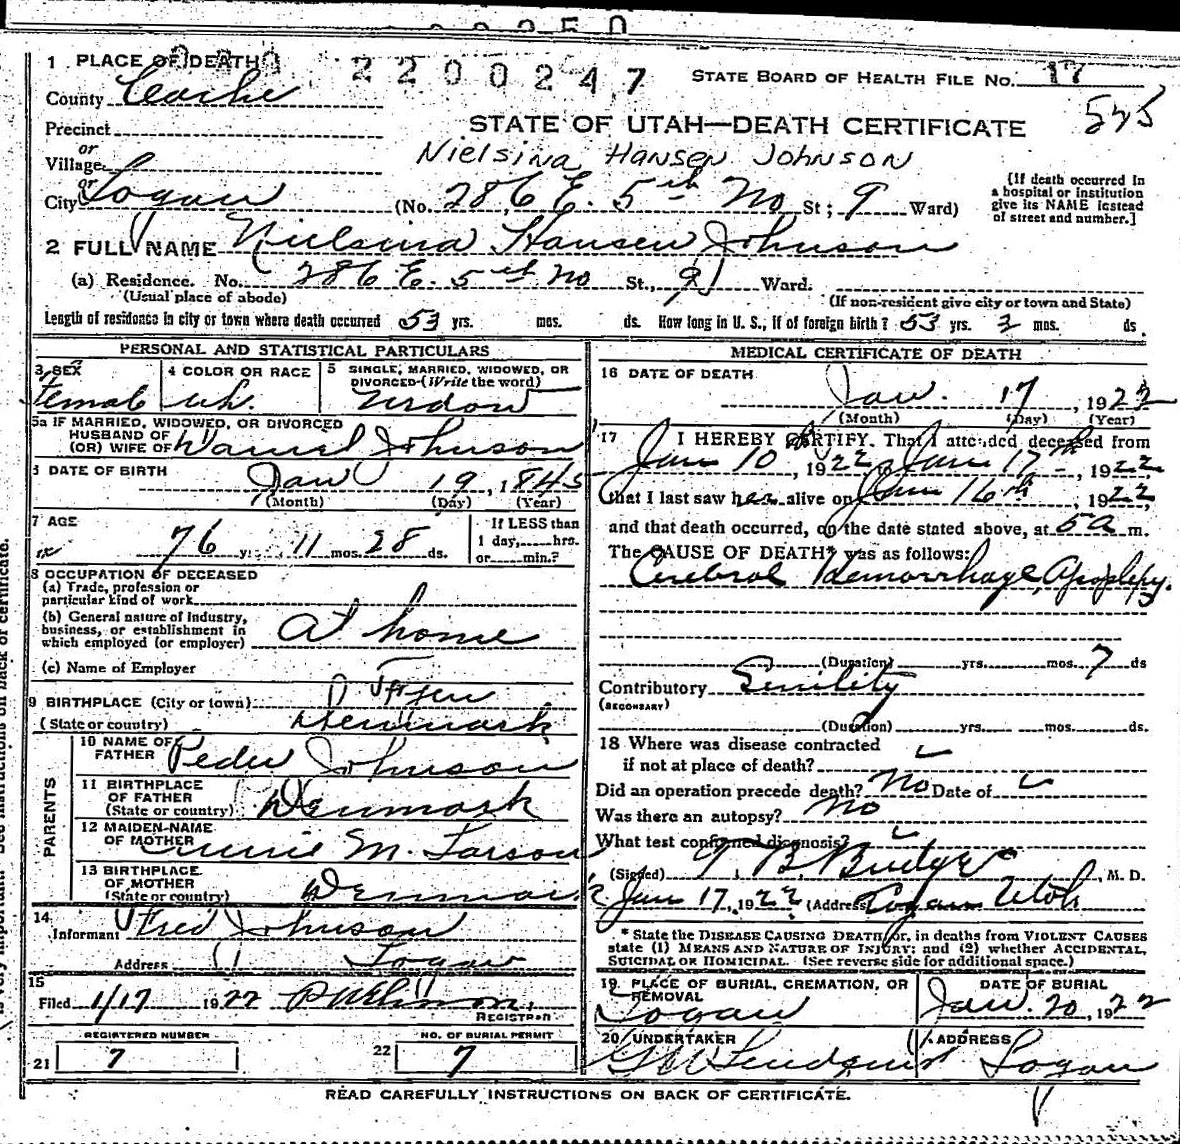 1 PLACE OF DEATH 2200247 STATE BOARD OF HEALTH FILE No. 17
County Cache 525
STATE OF UTAH—DEATH CERTIFICATE
Precinct
or
Village Nielsina Hansen Johnson
or
City Logan (No. 286 E. 5th No St; 9 Ward)
(If death occurred in a hospital or institution give its NAME instead of street and number.]
2 FULL NAME Nielsina Hansen Johnson
(a) Residence. No. 286 E. 5th No St., 9 Ward.
(Usual place of abode) (If non-resident give city or town and State)
Length of residence in city or town where death occurred 53 yrs. mos. ds. How long in U. S., if of foreign birth? 53 yrs. 3 mos. ds.
PERSONAL AND STATISTICAL PARTICULARS
3 SEX 4 COLOR OR RACE 5 SINGLE, MARRIED, WIDOWED, OR DIVORCED (Write the word)
Female wh. Widow
5a IF MARRIED, WIDOWED, OR DIVORCED
HUSBAND OF
(OR) WIFE OF Daniel Johnson
6 DATE OF BIRTH
Jan 19, 1845
(Month) (Day) (Year)
7 AGE
76 yrs. 11 mos. 28 ds.
If LESS than
1 day, hrs.
or min.?
8 OCCUPATION OF DECEASED
(a) Trade, profession or
particular kind of work
(b) General nature of industry,
business, or establishment in
which employed (or employer) At home
(c) Name of Employer
9 BIRTHPLACE (City or town)
(State or country) Denmark
PARENTS
10 NAME OF
FATHER Peder Johnson
11 BIRTHPLACE
OF FATHER
(State or country) Denmark
12 MAIDEN NAME
OF MOTHER M. Larson
13 BIRTHPLACE
OF MOTHER
(State or country) Denmar
14
Informant Fred Johnson
Address Logan
15
Filed 1/17 1922
REGISTRAR
REGISTERED NUMBER NO. OF BURIAL PERMIT
21 7 22 7
MEDICAL CERTIFICATE OF DEATH
16 DATE OF DEATH
Jan. 17, 1922
(Month) (Day) (Year)
17 I HEREBY CERTIFY, That I attended deceased from
Jan 10, 1922 to Jan 17th, 1922
that I last saw her alive on Jan 16th, 1922,
and that death occurred, on the date stated above, at 5a m.
The CAUSE OF DEATH* was as follows:
Cerebral Hemorrhage, Apoplexy.
(Duration) yrs. mos. 7 ds
Contributory Senility
(SECONDARY)
(Duration) yrs. mos. ds.
18 Where was disease contracted
if not at place of death?
Did an operation precede death? No Date of
Was there an autopsy? No
What test confirmed diagnosis?
(Signed) B. Budge, M. D.
Jan 17, 1922 (Address) Logan Utah
* State the DISEASE CAUSING DEATH, or, in deaths from VIOLENT CAUSES
state (1) MEANS AND NATURE OF INJURY; and (2) whether ACCIDENTAL,
SUICIDAL OR HOMICIDAL. (See reverse side for additional space.)
19 PLACE OF BURIAL, CREMATION, OR REMOVAL DATE OF BURIAL
Logan Jan. 20, 1922
20 UNDERTAKER ADDRESS
Lindquist Logan
READ CAREFULLY INSTRUCTIONS ON BACK OF CERTIFICATE.